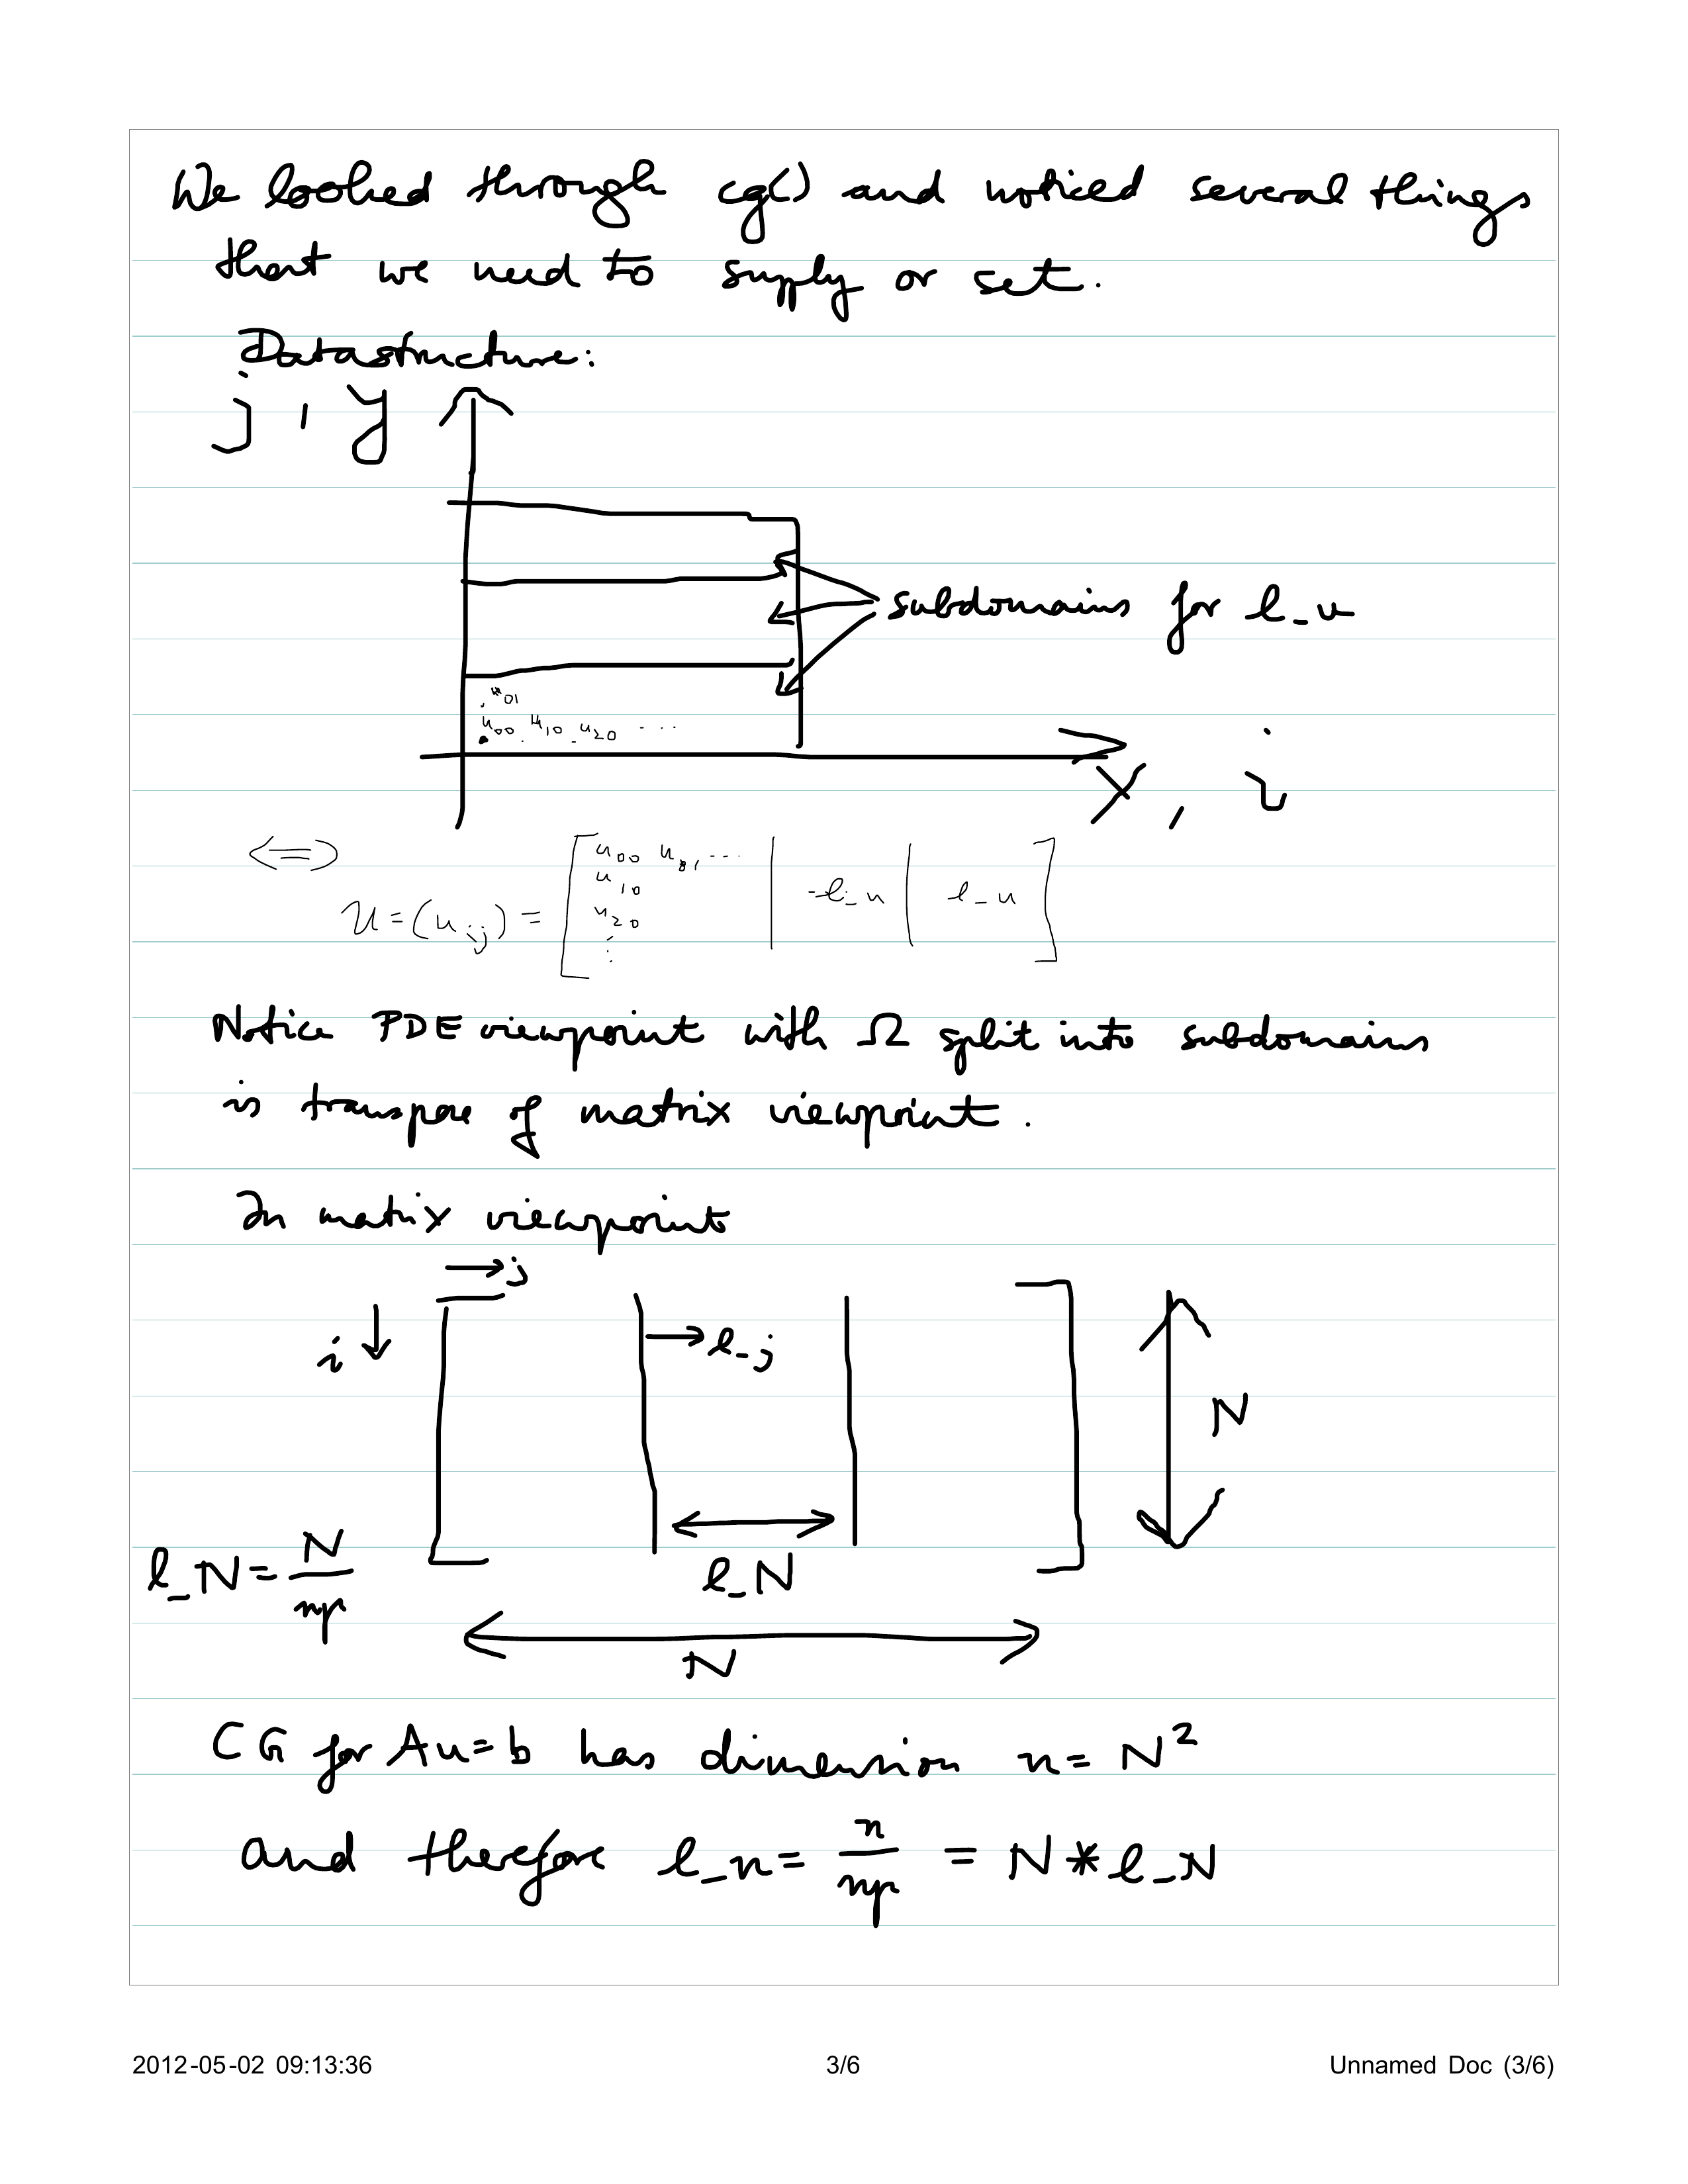 We looked through cg() and noticed several things
that we need to supply or set.
Datastructure:
j, y
subdomains for l_u
u01
u00 u10 u20 ...
x, i
⇔
U = (u_ij) = [ u00 u01 ... | l_u | l_u ]
u10
u20
⋮
Notice PDE viewpoint with Ω split into subdomains
is transpose of matrix viewpoint.
In matrix viewpoint
→ j
i ↓
→ l_j
N
l_N = N/np
l_N
N
CG for Au=b has dimension n = N²
and therefore l_n = n/np = N * l_N
2012-05-02 09:13:36
3/6
Unnamed Doc (3/6)